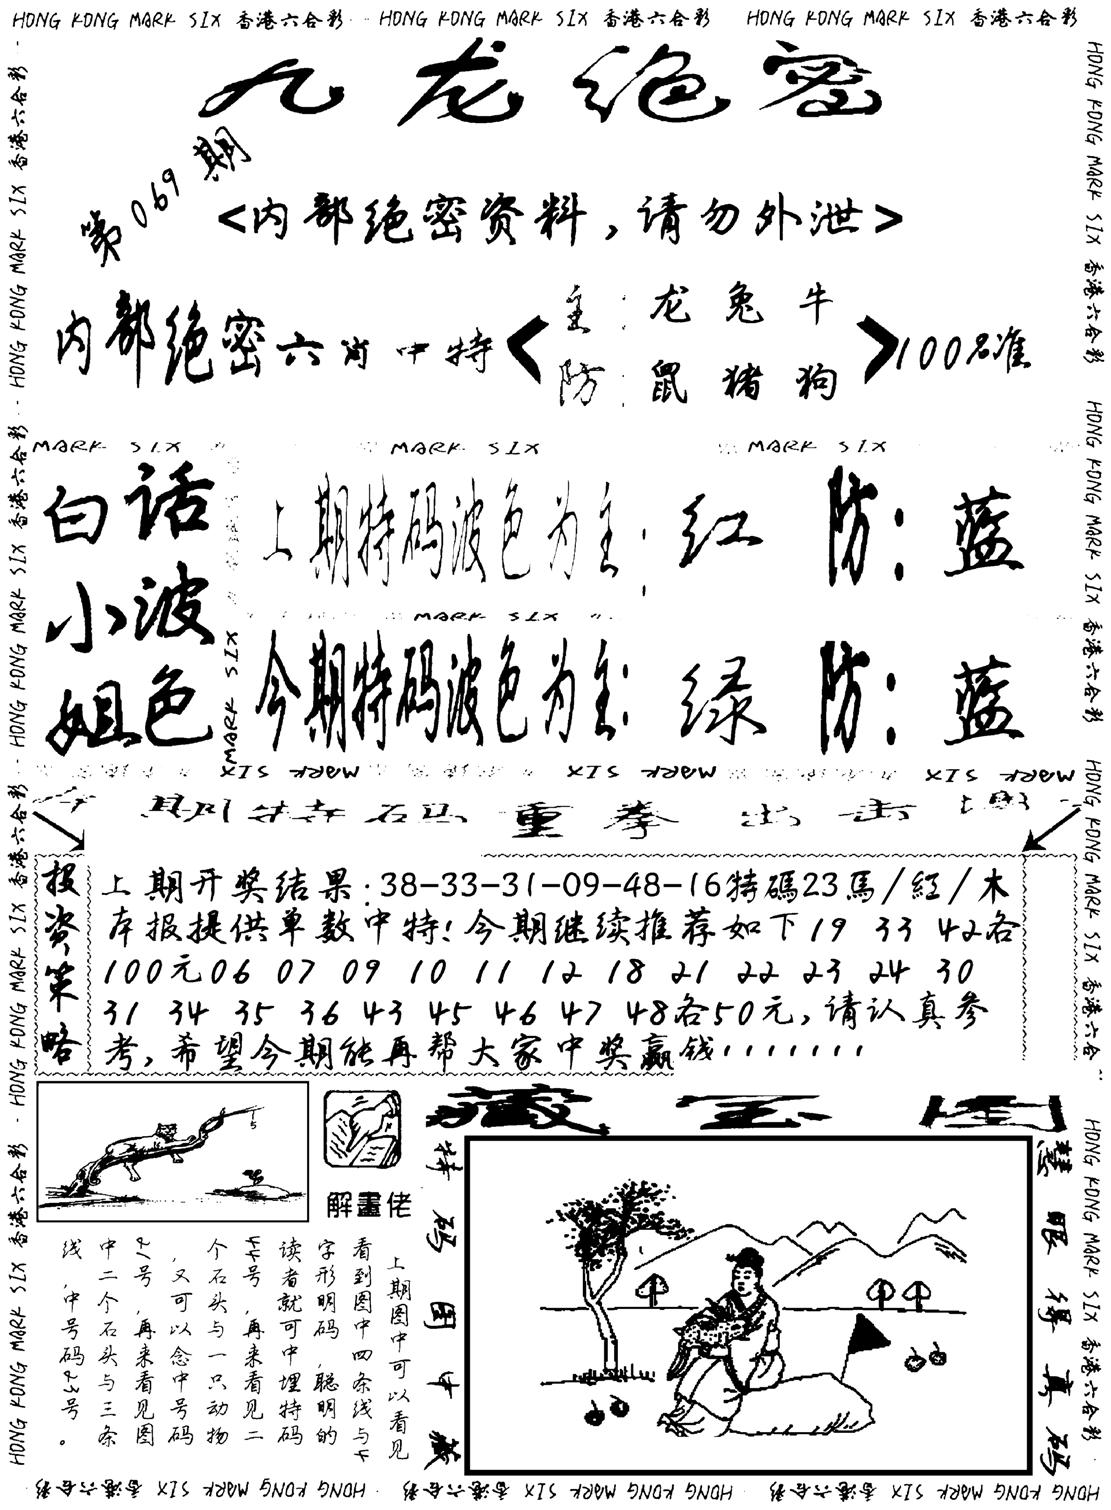 HONG KONG MARK SIX 香港六合彩 HONG KONG MARK SIX 香港六合彩 HONG KONG MARK SIX 香港六合彩
九龙绝密
第069期
<内部绝密资料,请勿外泄>
内部绝密六肖中特
主:龙兔牛
防:鼠猪狗
100%准
MARK SIX MARK SIX MARK SIX
白话
小波
姐色
上期特码波色为主:红 防:蓝
MARK SIX
今期特码波色为主:绿 防:蓝
MARK SIX
MARK SIX MARK SIX MARK SIX
期特码重拳出击
投资策略
上期开奖结果:38-33-31-09-48-16特碼23馬/紅/木
本报提供单数中特!今期继续推荐如下19 33 42各
100元06 07 09 10 11 12 18 21 22 23 24 30
31 34 35 36 43 45 46 47 48各50元,请认真参
考,希望今期能再帮大家中奖赢钱
解畫佬
藏宝图
特码图中藏
慧眼得真码
上期图中可以看见
看到图中四条线与
字形明码,聪明的
读者就可中埋特码
号,再来看见二
个石头与一只动物
,又可以念中号码
号,再来看见图
中二个石头与三条
线,中号码23号。
HONG KONG MARK SIX 香港六合彩 HONG KONG MARK SIX 香港六合彩 HONG KONG MARK SIX 香港六合彩 HONG KONG MARK SIX 香港六合彩
HONG KONG MARK SIX 香港六合彩 HONG KONG MARK SIX 香港六合彩 HONG KONG MARK SIX 香港六合 HONG KONG MARK SIX 香港六合彩
HONG KONG MARK SIX 香港六合彩 HONG KONG MARK SIX 香港六合彩 HONG KONG MARK SIX 香港六合彩